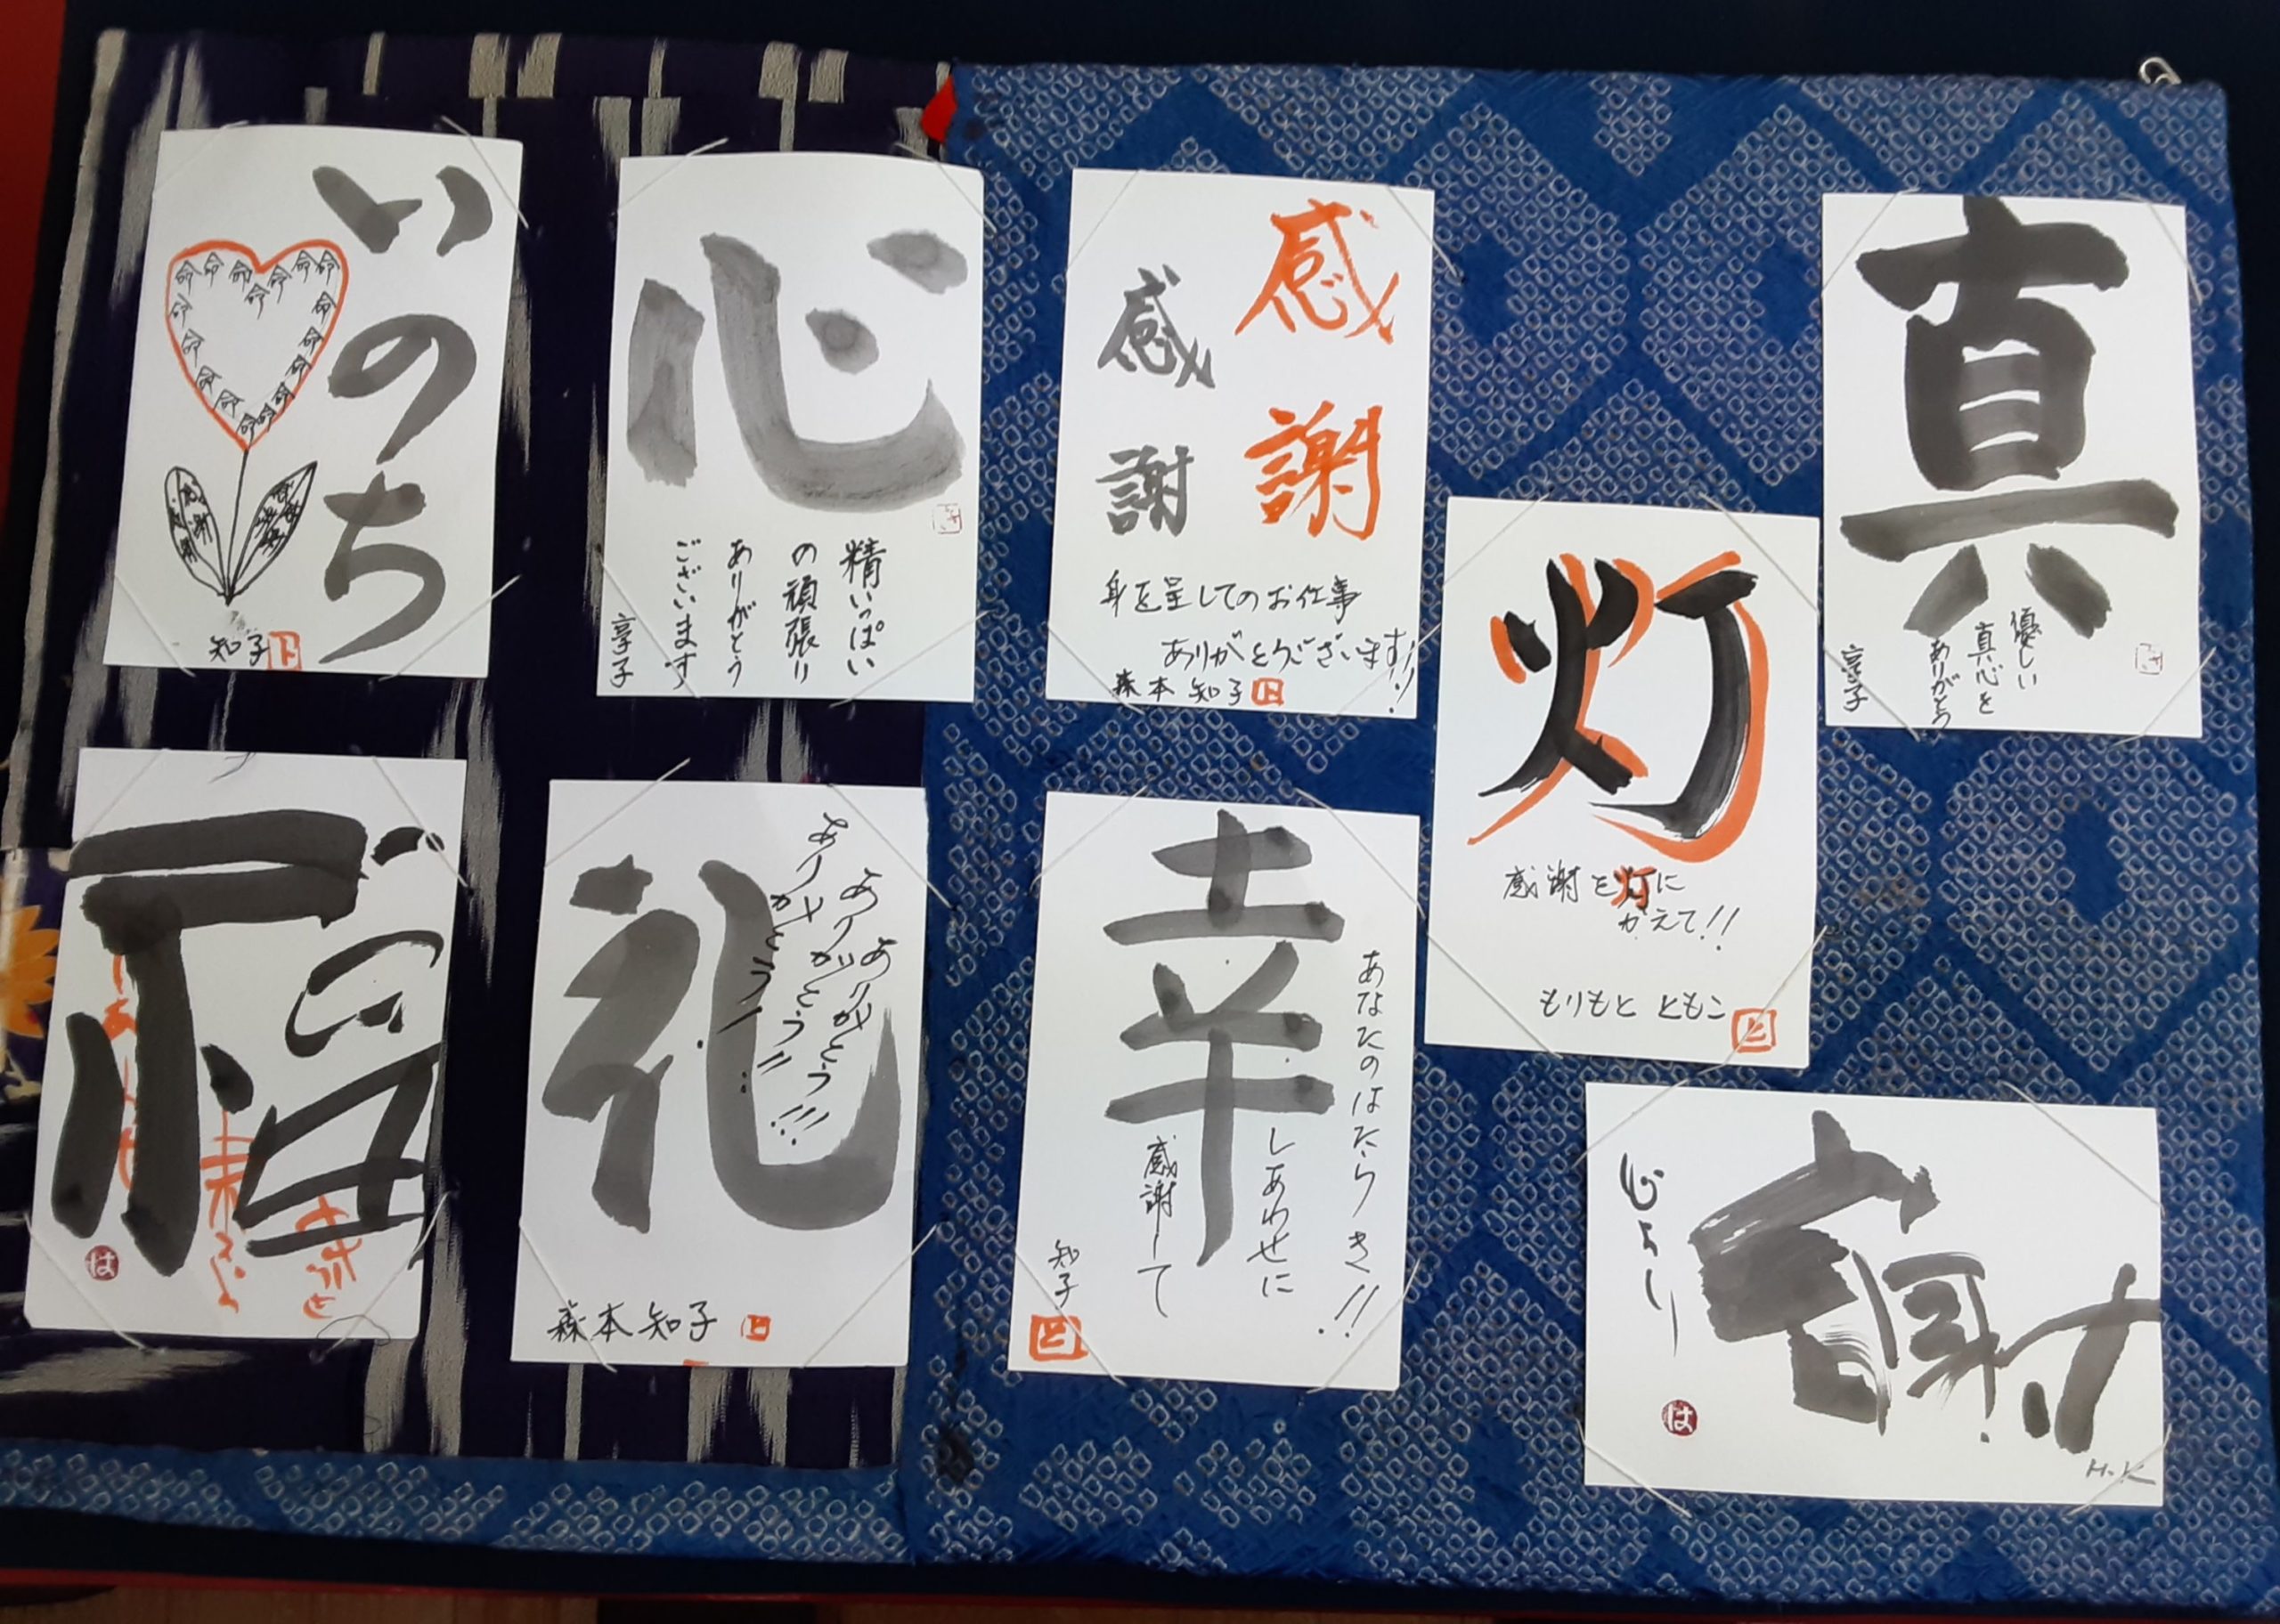 いのち
命命命命命命命命命命命命命命命命命命命
感謝
感謝
知子
ト
心
精いっぱい
の頑張り
ありがとう
ございます
享子
感謝
感謝
身を呈してのお仕事
ありがとうございます!!
森本 知子
ト
真
優しい
真心を
ありがとう
享子
灯
感謝を灯に
かえて!!
もりもと ともこ
と
福
は
礼
ありがとう!
ありがとう!!
ありがとう!!!
森本 知子
ト
幸
あなたのはたらき!!
しあわせに
感謝して
知子
と
謝
心より
は
H.K